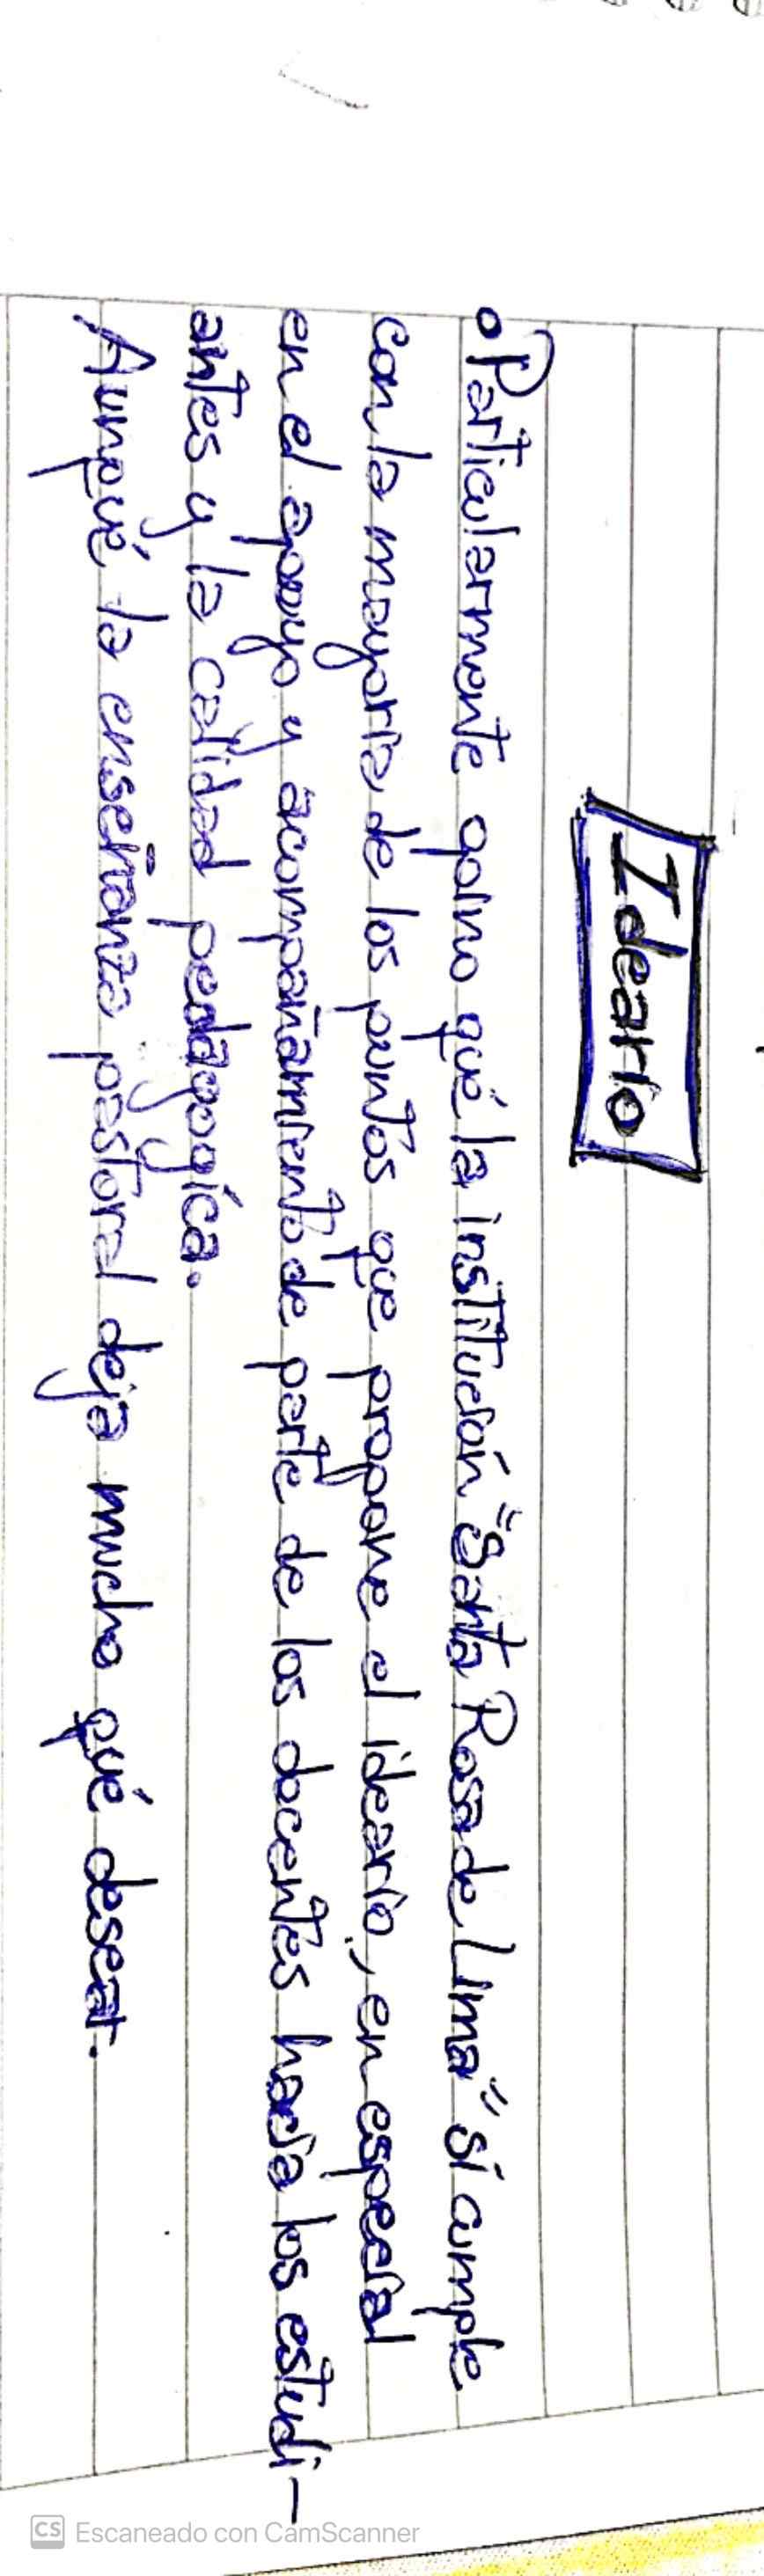 Ideario
• Particularmente opino qué la institución "Santa Rosa de Lima" sí cumple
con la mayoría de los puntos que propone el ideario, en especial
en el apoyo y acompañamiento de parte de los docentes hacia los estudi-
antes y la calidad pedagogíca.
Aunqué la enseñanza pastoral deja mucho qué desear.
CS Escaneado con CamScanner